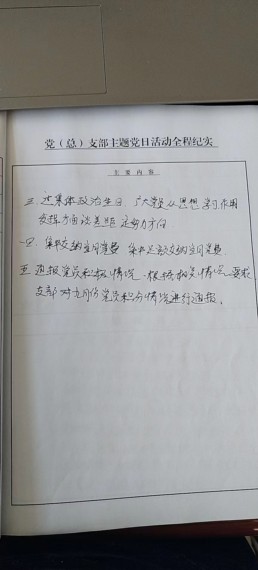 党（总）支部主题党日活动全程纪实
主要内容
三、过集体政治生日。广大党员从思想、学习、作用
发挥方面谈差距、定努力方向
四、集中交纳党费。集中足额交纳党费
五、通报党员积极情况。根据相关情况要求
支部对九月份党员积分情况进行通报。